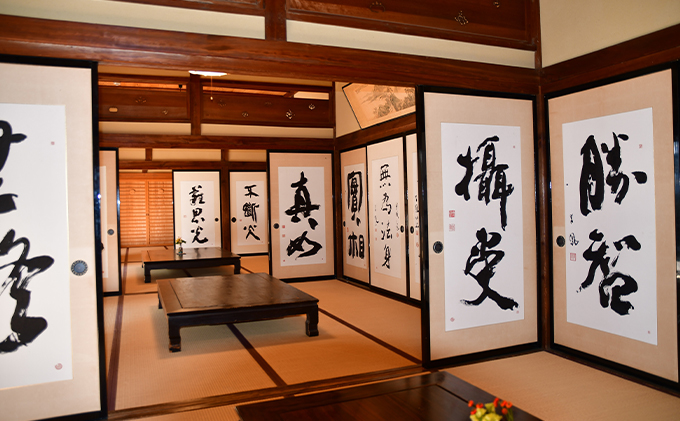 勝智
攝受
無為法身
實相
真如
不断光
難思光